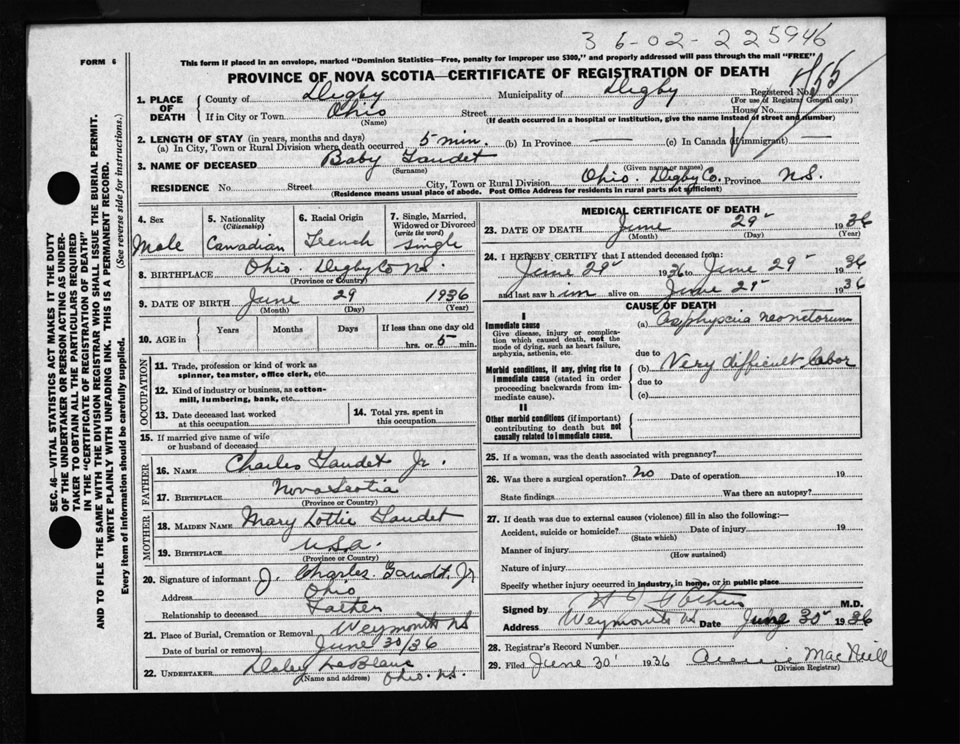 36-02-225946
FORM 6
This form if placed in an envelope, marked "Dominion Statistics—Free, penalty for improper use $300," and properly addressed will pass through the mail "FREE"
PROVINCE OF NOVA SCOTIA—CERTIFICATE OF REGISTRATION OF DEATH
Registered No.
(For use of Registrar General only)
1. PLACE OF DEATH
County of Digby Municipality of Digby
If in City or Town Ohio Street House No.
(Name) (If death occurred in a hospital or institution, give the name instead of street and number)
2. LENGTH OF STAY (in years, months and days)
(a) In City, Town or Rural Division where death occurred 5 min. (b) In Province — (c) In Canada (if immigrant) —
3. NAME OF DECEASED Baby Gaudet
(Surname) (Given name or names)
RESIDENCE No. Street City, Town or Rural Division Ohio. Digby Co. Province N.S.
(Residence means usual place of abode. Post Office Address for residents in rural parts not sufficient)
4. Sex Male
5. Nationality (Citizenship) Canadian
6. Racial Origin French
7. Single, Married, Widowed or Divorced (write the word) Single
8. BIRTHPLACE Ohio. Digby Co N.S.
(Province or Country)
9. DATE OF BIRTH June 29 1936
(Month) (Day) (Year)
10. AGE in Years Months Days If less than one day old
hrs. or 5 min.
OCCUPATION
11. Trade, profession or kind of work as spinner, teamster, office clerk, etc.
12. Kind of industry or business, as cotton-mill, lumbering, bank, etc.
13. Date deceased last worked at this occupation
14. Total yrs. spent in this occupation
15. If married give name of wife or husband of deceased
FATHER
16. NAME Charles Gaudet Jr.
17. BIRTHPLACE Nova Scotia
(Province or Country)
MOTHER
18. MAIDEN NAME Mary Lottie Gaudet
19. BIRTHPLACE U.S.A.
(Province or Country)
20. Signature of informant J. Charles Gaudet, Jr
Address Ohio
Relationship to deceased Father
21. Place of Burial, Cremation or Removal Weymouth N.S
Date of burial or removal June 30/36
22. UNDERTAKER LeBlanc
(Name and address) Ohio. N.S.
MEDICAL CERTIFICATE OF DEATH
23. DATE OF DEATH June 29 1936
(Month) (Day) (Year)
24. I HEREBY CERTIFY that I attended deceased from:
June 29 1936 to June 29 1936
and last saw h im alive on June 29 1936
CAUSE OF DEATH
I
Immediate cause
Give disease, injury or complication which caused death, not the mode of dying, such as heart failure, asphyxia, asthenia, etc.
(a) Asphyxia neonetorum
due to
Morbid conditions, if any, giving rise to immediate cause (stated in order proceeding backwards from immediate cause).
(b) Very difficult labor
due to
(c)
II
Other morbid conditions (if important) contributing to death but not causally related to immediate cause.
25. If a woman, was the death associated with pregnancy?
26. Was there a surgical operation? No Date of operation 19
State findings Was there an autopsy?
27. If death was due to external causes (violence) fill in also the following:—
Accident, suicide or homicide? Date of injury 19
(State which)
Manner of injury
(How sustained)
Nature of injury
Specify whether injury occurred in industry, in home, or in public place
Signed by M.D.
Address Weymouth N.S Date June 30 1936
28. Registrar's Record Number
29. Filed June 30 1936 MacNeill
(Division Registrar)
SEC. 46—VITAL STATISTICS ACT MAKES IT THE DUTY
OF THE UNDERTAKER OR PERSON ACTING AS UNDER-
TAKER TO OBTAIN ALL THE PARTICULARS REQUIRED
IN THE "CERTIFICATE OF REGISTRATION OF DEATH"
AND TO FILE THE SAME WITH THE DIVISION REGISTRAR WHO SHALL ISSUE THE BURIAL PERMIT.
WRITE PLAINLY WITH UNFADING INK. THIS IS A PERMANENT RECORD.
Every item of information should be carefully supplied. (See reverse side for instructions.)